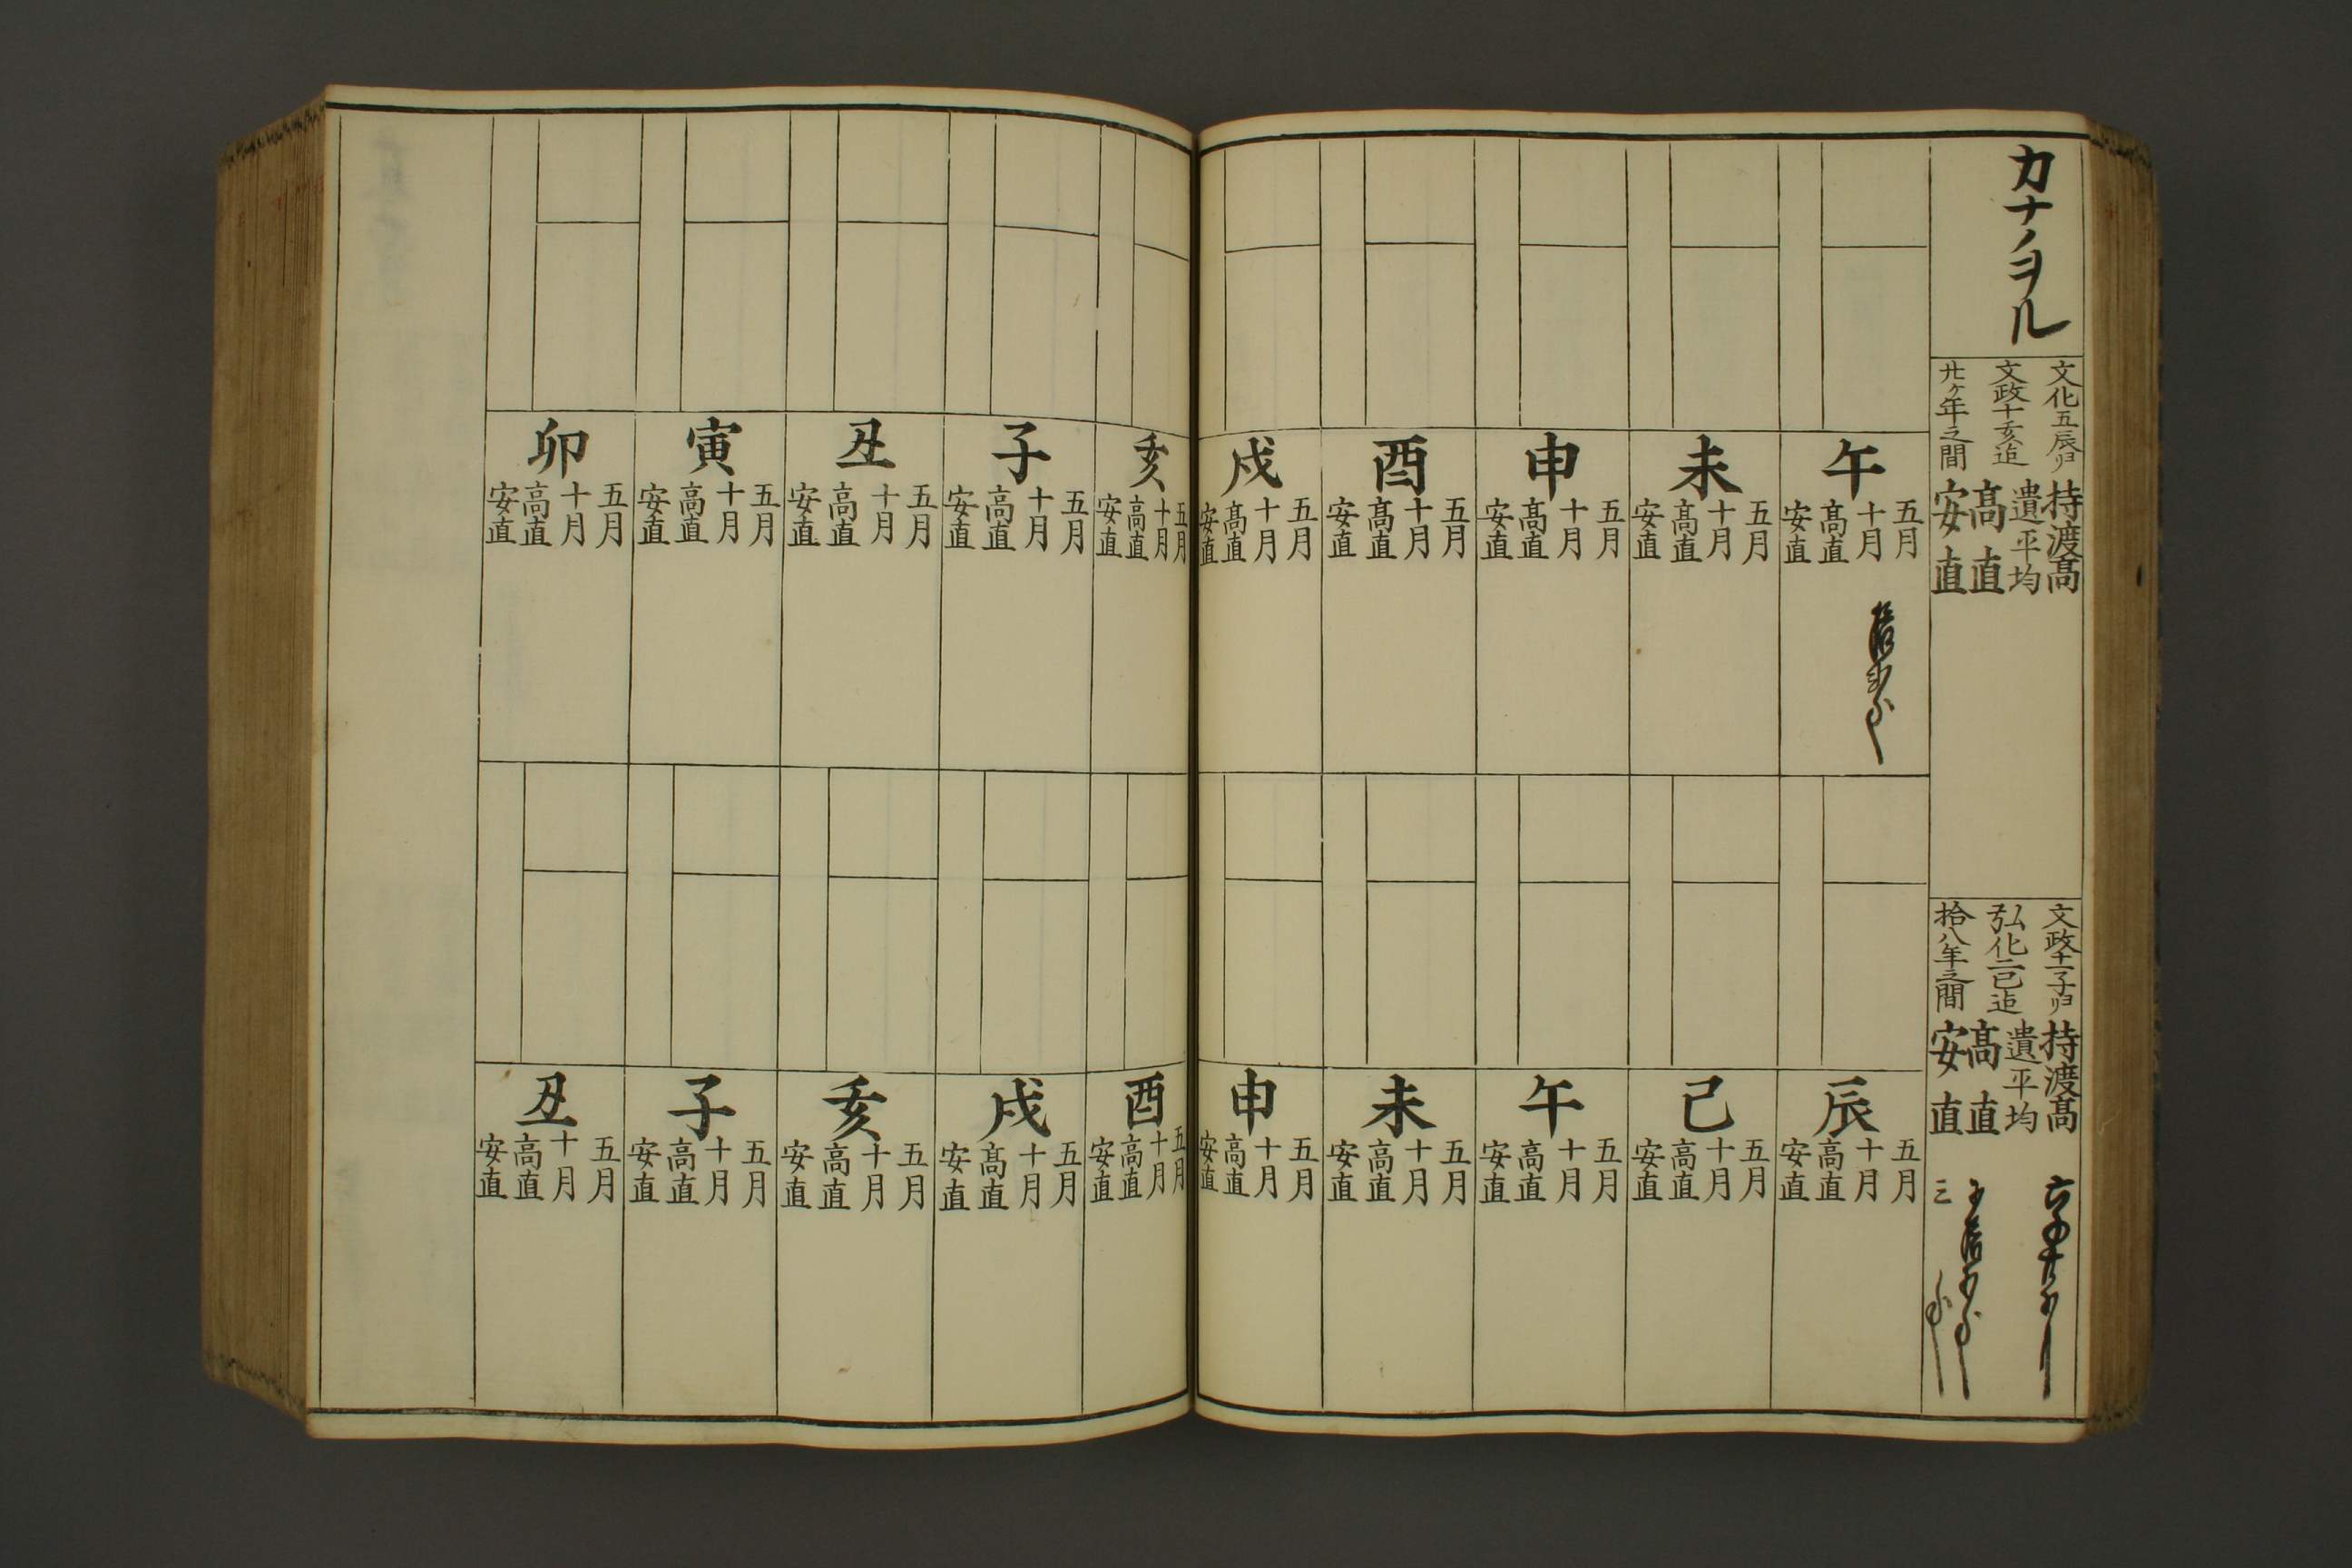 カナノヲル
文化五辰ゟ
文政十亥迠
廿ヶ年之間
持渡高
遺平均
高直
安直
文政十一子ゟ
弘化二巳迠
拾八年之間
持渡高
遺平均
高直
安直
午
五月
十月
高直
安直
未
五月
十月
高直
安直
申
五月
十月
高直
安直
酉
五月
十月
高直
安直
戌
五月
十月
高直
安直
亥
五月
十月
高直
安直
子
五月
十月
高直
安直
丑
五月
十月
高直
安直
寅
五月
十月
高直
安直
卯
五月
十月
高直
安直
辰
五月
十月
高直
安直
巳
五月
十月
高直
安直
午
五月
十月
高直
安直
未
五月
十月
高直
安直
申
五月
十月
高直
安直
酉
五月
十月
高直
安直
戌
五月
十月
高直
安直
亥
五月
十月
高直
安直
子
五月
十月
高直
安直
丑
五月
十月
高直
安直